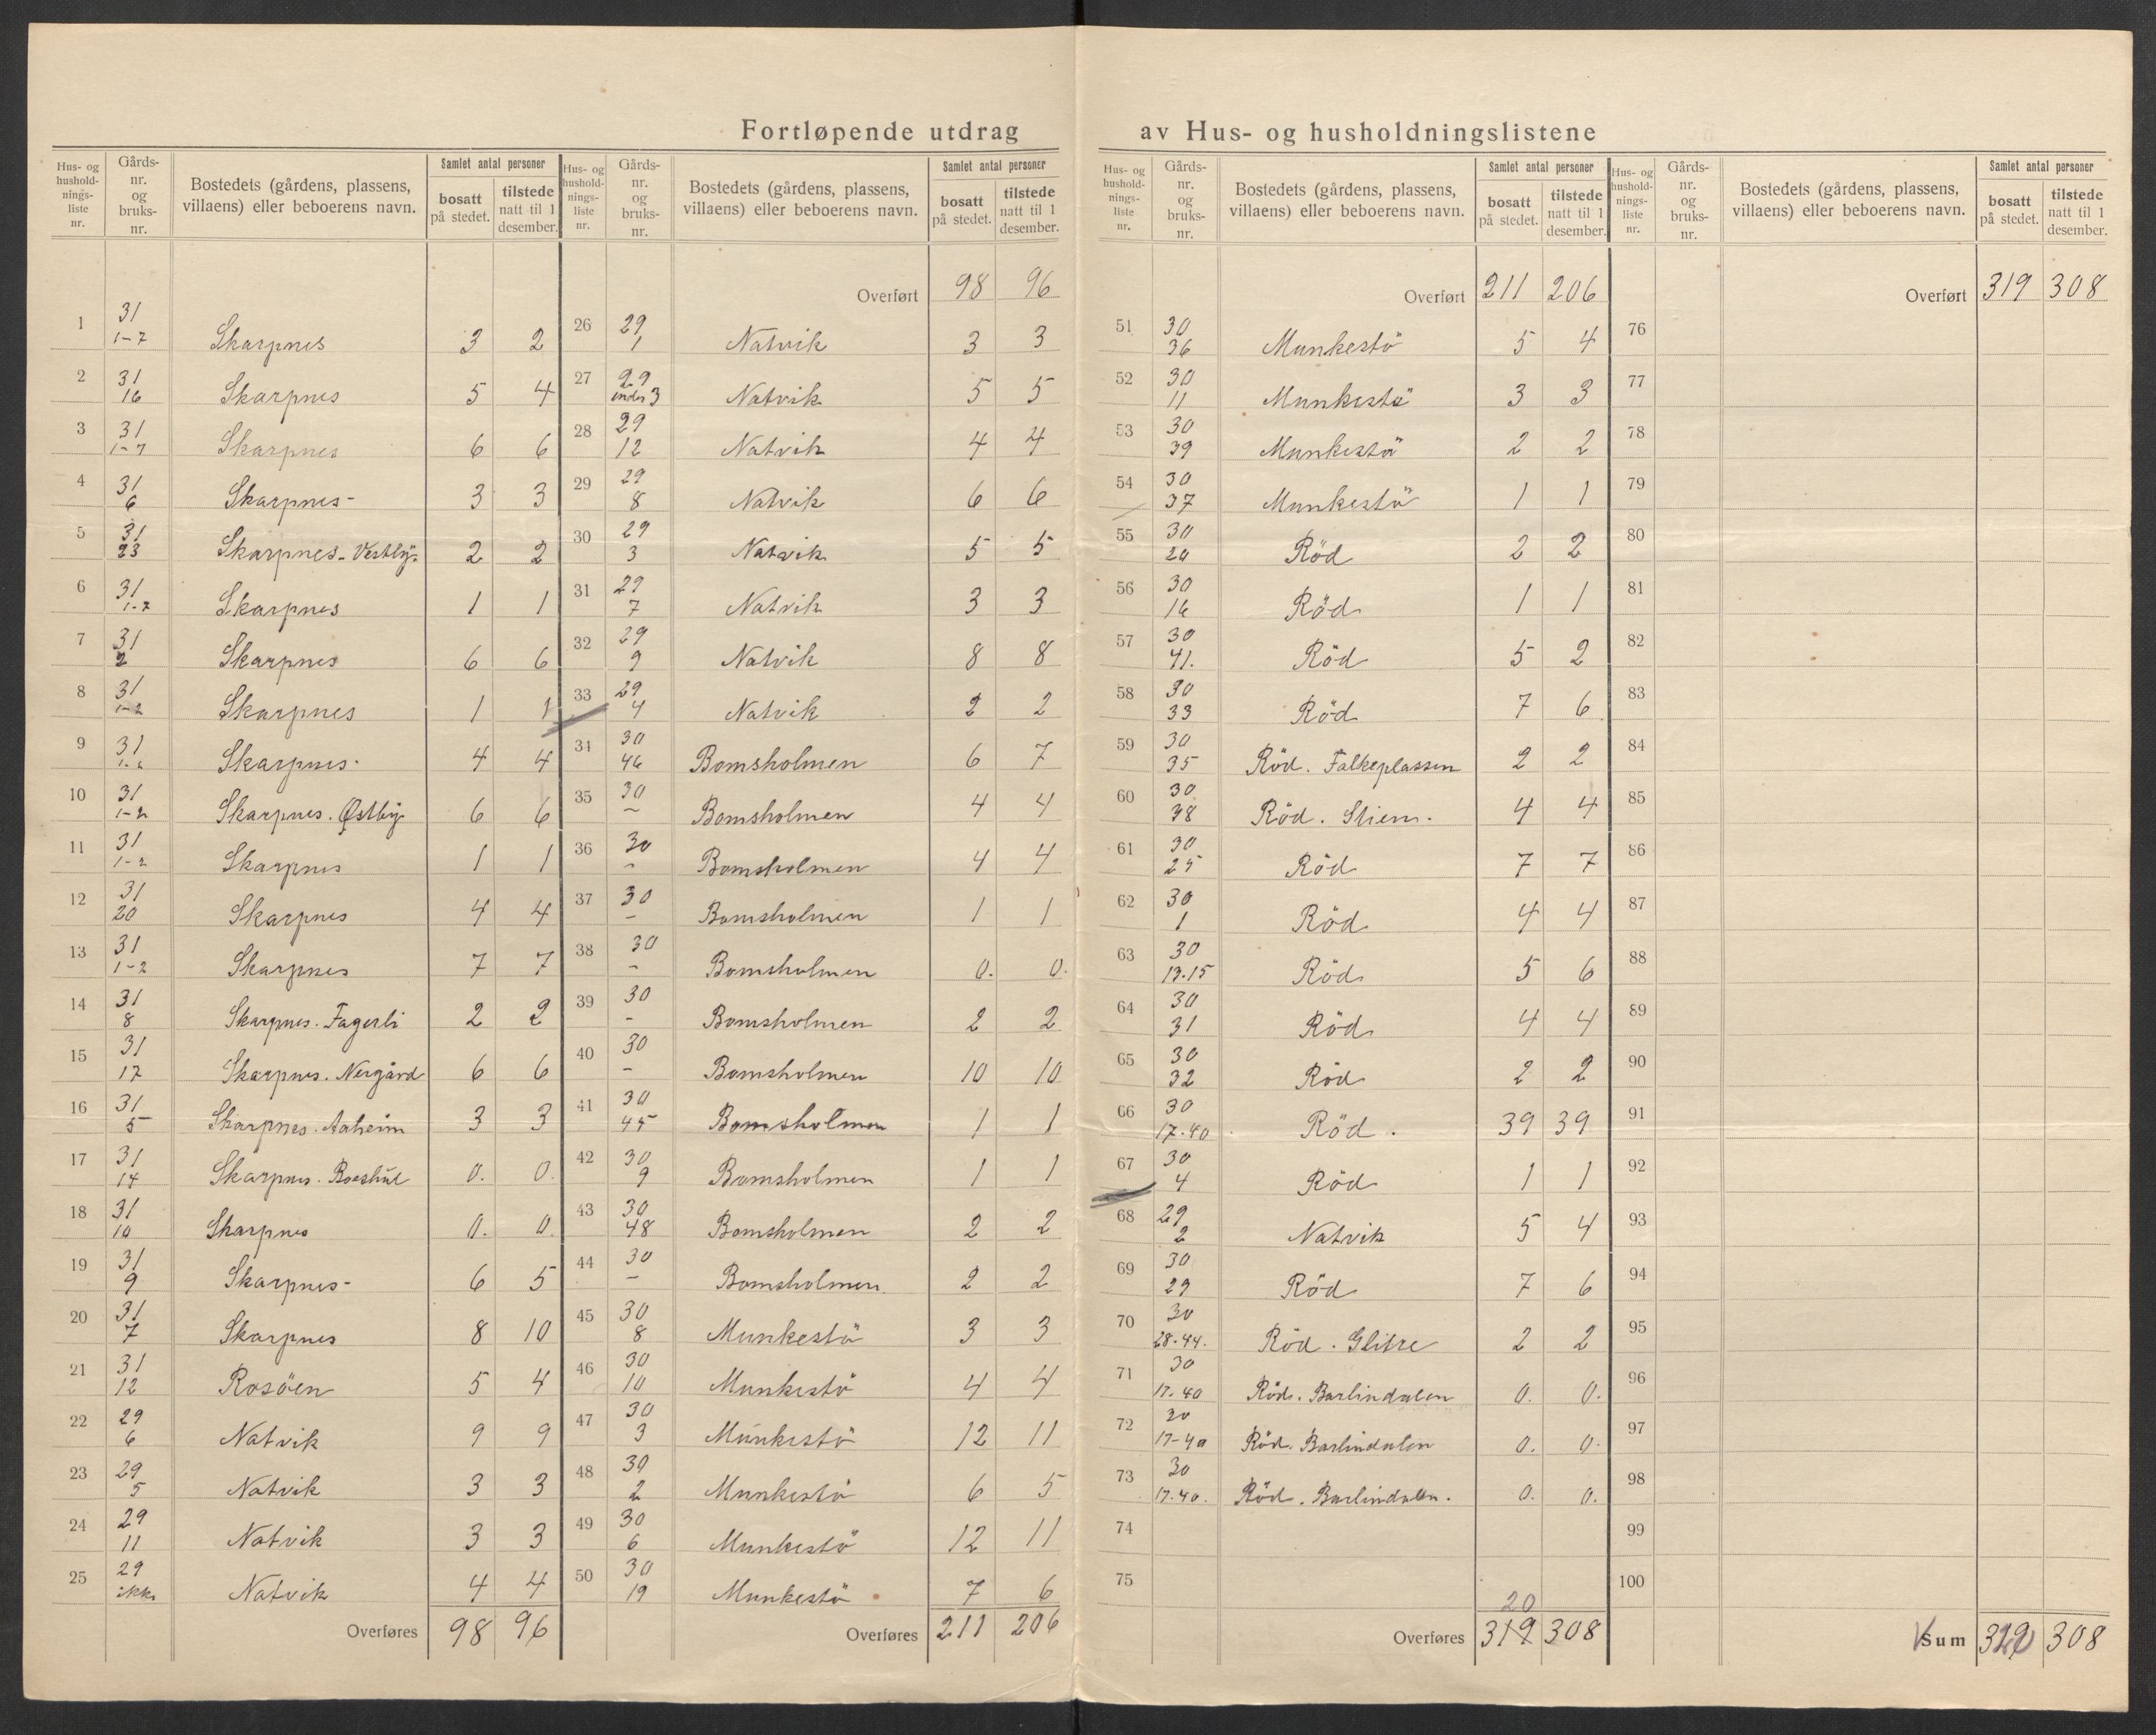 Fortløpende utdrag av Hus- og husholdningslistene
Hus- og husholdnings- liste nr. | Gårds- nr. og bruks- nr. | Bostedets (gårdens, plassens, villaens) eller beboerens navn. | Samlet antal personer | bosatt på stedet. | tilstede natt til 1 desember.
1 31 1-7 Skarpnes 3 2
2 31 16 Skarpnes 5 4
3 31 1-7 Skarpnes 6 6
4 31 6 Skarpnes- 3 3
5 31 23 Skarpnes-Vestby- 2 2
6 31 1-2 Skarpnes 1 1
7 31 2 Skarpnes 6 6
8 31 1-2 Skarpnes 1 1
9 31 1-2 Skarpnes- 4 4
10 31 1-2 Skarpnes. Østby- 6 6
11 31 1-2 Skarpnes 1 1
12 31 20 Skarpnes 4 4
13 31 1-2 Skarpnes 7 7
14 31 8 Skarpnes. Fagerli 2 2
15 31 17 Skarpnes. Nergård 6 6
16 31 5 Skarpnes. Aaheim 3 3
17 31 14 Skarpnes. 0. 0.
18 31 10 Skarpnes 0. 0.
19 31 9 Skarpnes- 6 5
20 31 7 Skarpnes 8 10
21 31 12 Rosöen 5 4
22 29 6 Natvik 9 9
23 29 5 Natvik 3 3
24 29 11 Natvik 3 3
25 29 ikke Natvik 4 4
Overføres 98 96
Hus- og husholdnings- liste nr. | Gårds- nr. og bruks- nr. | Bostedets (gårdens, plassens, villaens) eller beboerens navn. | Samlet antal personer | bosatt på stedet. | tilstede natt til 1 desember.
Overført 98 96
26 29 1 Natvik 3 3
27 29 under 3 Natvik 5 5
28 29 12 Natvik 4 4
29 29 8 Natvik 6 6
30 29 3 Natvik 5 5
31 29 7 Natvik 3 3
32 29 9 Natvik 8 8
33 29 4 Natvik 2 2
34 30 46 Bomsholmen 6 7
35 30 - Bomsholmen 4 4
36 30 - Bomsholmen 4 4
37 30 - Bomsholmen 1 1
38 30 - Bomsholmen 0. 0.
39 30 - Bomsholmen 2 2
40 30 - Bomsholmen 10 10
41 30 45 Bomsholmen 1 1
42 30 9 Bomsholmen 1 1
43 30 48 Bomsholmen 2 2
44 30 - Bomsholmen 2 2
45 30 8 Munkestö 3 3
46 30 10 Munkestö 4 4
47 30 3 Munkestö 12 11
48 30 2 Munkestö 6 5
49 30 6 Munkestö 12 11
50 30 19 Munkestö 7 6
Overføres 211 206
Hus- og husholdnings- liste nr. | Gårds- nr. og bruks- nr. | Bostedets (gårdens, plassens, villaens) eller beboerens navn. | Samlet antal personer | bosatt på stedet. | tilstede natt til 1 desember.
Overført 211 206
51 30 36 Munkestö 5 4
52 30 11 Munkestö 3 3
53 30 39 Munkestö 2 2
54 30 37 Munkestö 1 1
55 30 20 Röd 2 2
56 30 16 Röd 1 1
57 30 41. Röd 5 2
58 30 33 Röd 7 6
59 30 35 Röd. Falkeplassen 2 2
60 30 38 Röd. Stien. 4 4
61 30 25 Röd 7 7
62 30 1 Röd 4 4
63 30 13.15 Röd 5 6
64 30 31 Röd 4 4
65 30 32 Röd 2 2
66 30 17-40 Röd. 39 39
67 30 4 Röd 1 1
68 29 2 Natvik 5 4
69 30 29 Röd 7 6
70 30 28-44. Röd. Glitre 2 2
71 30 17-40 Röd. Barlindalen 0. 0.
72 30 17-40 Röd. Barlindalen 0. 0.
73 30 17-40. Röd. Barlindalen. 0. 0.
74
75
20
Overføres 319 308
Hus- og husholdnings- liste nr. | Gårds- nr. og bruks- nr. | Bostedets (gårdens, plassens, villaens) eller beboerens navn. | Samlet antal personer | bosatt på stedet. | tilstede natt til 1 desember.
Overført 319 308
76
77
78
79
80
81
82
83
84
85
86
87
88
89
90
91
92
93
94
95
96
97
98
99
100
Sum 320 308